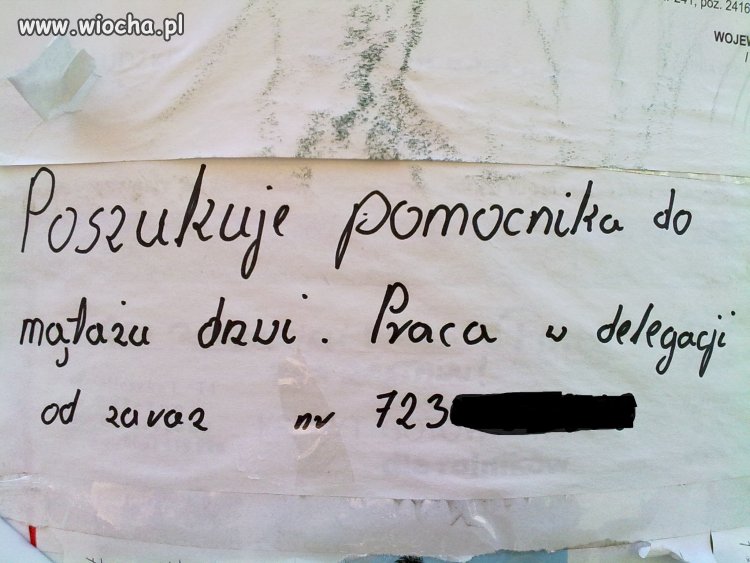 www.wiocha.pl
241, poz. 2416
WOJEW
Poszukuje pomocnika do
mątażu drzwi. Praca w delegacji
od zaraz nr 723